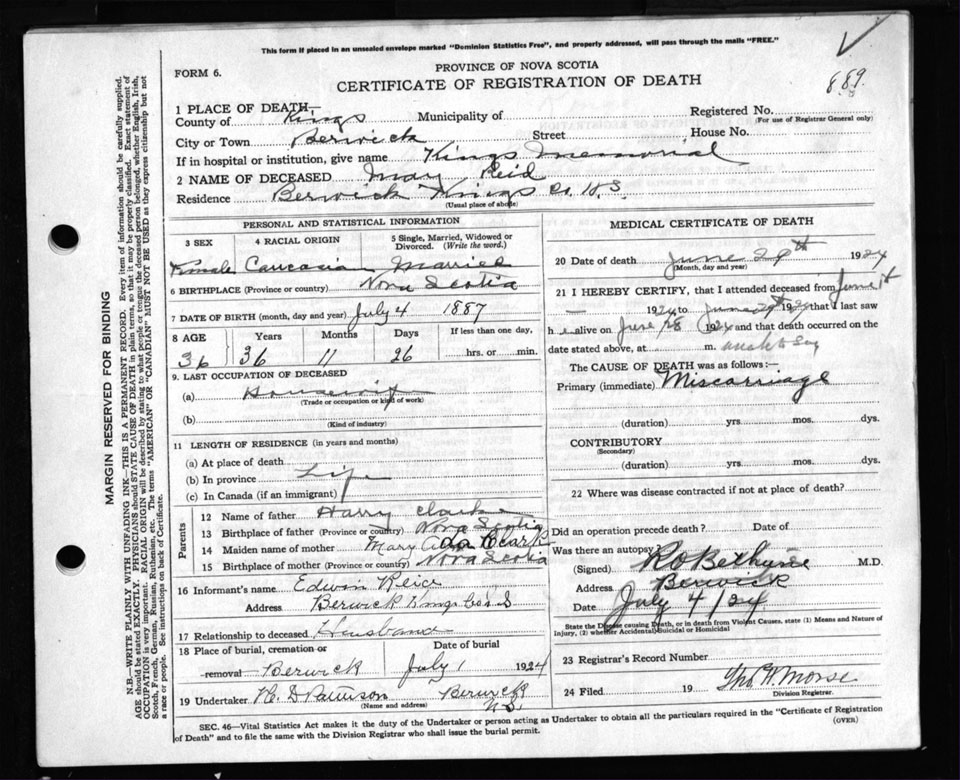 This form if placed in an unsealed envelope marked "Dominion Statistics Free", and properly addressed, will pass through the mails "FREE."
FORM 6.
PROVINCE OF NOVA SCOTIA
CERTIFICATE OF REGISTRATION OF DEATH
889
1 PLACE OF DEATH—
County of Kings Municipality of Registered No.
(For use of Registrar General only)
City or Town Berwick Street House No.
If in hospital or institution, give name Kings Memorial
2 NAME OF DECEASED May Reid
Residence Berwick Kings Co. N.S
(Usual place of abode)
PERSONAL AND STATISTICAL INFORMATION
3 SEX 4 RACIAL ORIGIN 5 Single, Married, Widowed or Divorced. (Write the word.)
Female Caucasian Married
6 BIRTHPLACE (Province or country) Nova Scotia
7 DATE OF BIRTH (month, day and year) July 4 1887
8 AGE Years Months Days If less than one day,
36 36 11 26 hrs. or min.
9. LAST OCCUPATION OF DECEASED
(a) Housewife
(Trade or occupation or kind of work)
(b)
(Kind of industry)
11 LENGTH OF RESIDENCE (in years and months)
(a) At place of death
(b) In province Life
(c) In Canada (if an immigrant)
Parents
12 Name of father Harry Clark
13 Birthplace of father (Province or country) Nova Scotia
14 Maiden name of mother Mary Ada Clark
15 Birthplace of mother (Province or country) Nova Scotia
16 Informant's name Edwin Reid
Address Berwick Kings Co N S
17 Relationship to deceased Husband
18 Place of burial, cremation or Date of burial
removal Berwick July 1 1924
19 Undertaker Berwick
(Name and address) N.S.
MEDICAL CERTIFICATE OF DEATH
20 Date of death June 29th 1924
(Month, day and year)
21 I HEREBY CERTIFY, that I attended deceased from June 1st
— 1924 to June 29th 1924 that I last saw
h e alive on June 28 1924 and that death occurred on
date stated above, at m.
The CAUSE OF DEATH was as follows:
Primary (immediate) Miscarriage
(duration) yrs. mos. dys.
CONTRIBUTORY
(Secondary)
(duration) yrs. mos. dys.
22 Where was disease contracted if not at place of death?
Did an operation precede death? Date of
Was there an autopsy?
(Signed) R O Bethune M.D.
Address Berwick
Date July 4/24
State the Disease causing Death, or in death from Violent Causes, state (1) Means and Nature of
Injury, (2) whether Accidental, Suicidal or Homicidal
23 Registrar's Record Number
24 Filed 19 Morse
Division Registrar.
SEC. 46—Vital Statistics Act makes it the duty of the Undertaker or person acting as Undertaker to obtain all the particulars required in the "Certificate of Registration
of Death" and to file the same with the Division Registrar who shall issue the burial permit.
(OVER)
MARGIN RESERVED FOR BINDING
N.B.—WRITE PLAINLY WITH UNFADING INK—THIS IS A PERMANENT RECORD. Every item of information should be carefully supplied.
AGE should be stated EXACTLY. PHYSICIANS should STATE CAUSE OF DEATH in plain terms, so that it may be properly classified. Exact statement of
OCCUPATION is very important. RACIAL ORIGIN will be described by stating to what people or tongue the deceased person belonged, whether English, Irish,
Scotch, French, German, Russian, Ruthenian, etc. The terms "AMERICAN" OR "CANADIAN" MUST NOT BE USED as they express citizenship but not
a race or people. See instructions on back of Certificate.